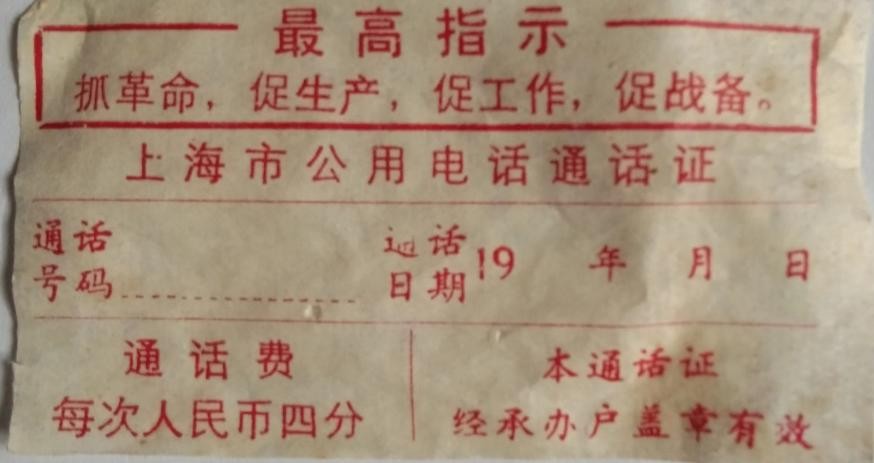 最高指示
抓革命，促生产，促工作，促战备。
上海市公用电话通话证
通话号码
通话日期 19 年 月 日
通话费
每次人民币四分
本通话证
经承办户盖章有效